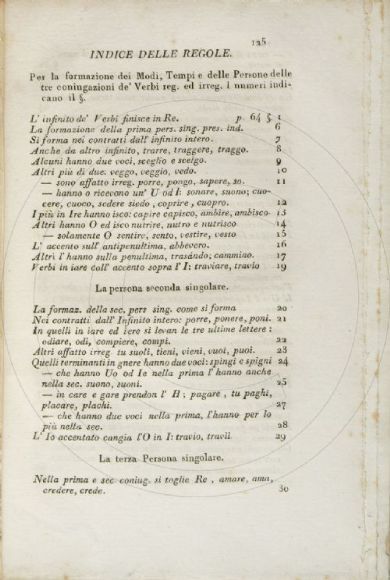 125
INDICE DELLE REGOLE.
Per la formazione dei Modi, Tempi e delle Persone delle
tre coniugazioni de' Verbi reg. ed irreg. i numeri indi-
cano il §.
L' infinito de' Verbi finisce in Re. p 64 § 1
La formazione della prima pers. sing. pres. ind. 6
Si forma nei contratti dall' infinito intero. 7
Anche da altro infinito, trarre, traggere, traggo. 8
Alcuni hanno due voci, sceglio e scelgo. 9
Altri più di due. veggo, veggio, vedo. 10
— sono affatto irreg. porre, pongo, sapere, so. 11
— hanno o ricevono un' U od I: sonare, suono; cuo-
cere, cuoco, sedere siedo, coprire, cuopro. 12
I più in Ire hanno isco: capire capisco, ambire, ambisco 13
Altri hanno O ed isco nutrire, nutro e nutrisco 14
— solamente O sentire, sento, vestire, vesto 15
L' accento sull' antipenultima, abbevero. 16
Altri l' hanno sulla penultima, trasándo; cammino. 17
Verbi in iare coll' accento sopra l' I: traviare, travio 19
La persona seconda singolare.
La formaz. della sec. pers sing. come si forma 20
Nei contratti dall' Infinito intero: porre, ponere, poni. 21
In quelli in iare ed iero si levan le tre ultime lettere:
odiare, odi, compiere, compi. 22
Altri affatto irreg tu suoli, tieni, vieni, vuoi, puoi. 23
Quelli terminanti in gnere hanno due voci: spingi e spigni 24
— che hanno Uo od Ie nella prima l' hanno anche
nella sec. suono, suoni. 25
— in care e gare prendon l' H; pagare, tu paghi,
placare, plachi. 27
— che hanno due voci nella prima, l'hanno per lo
più nella sec. 28
L' Io accentato cangia l'O in I: travio, travii 29
La terza Persona singolare.
Nella prima e sec coniug. si toglie Re, amare, ama,
credere, crede. 30